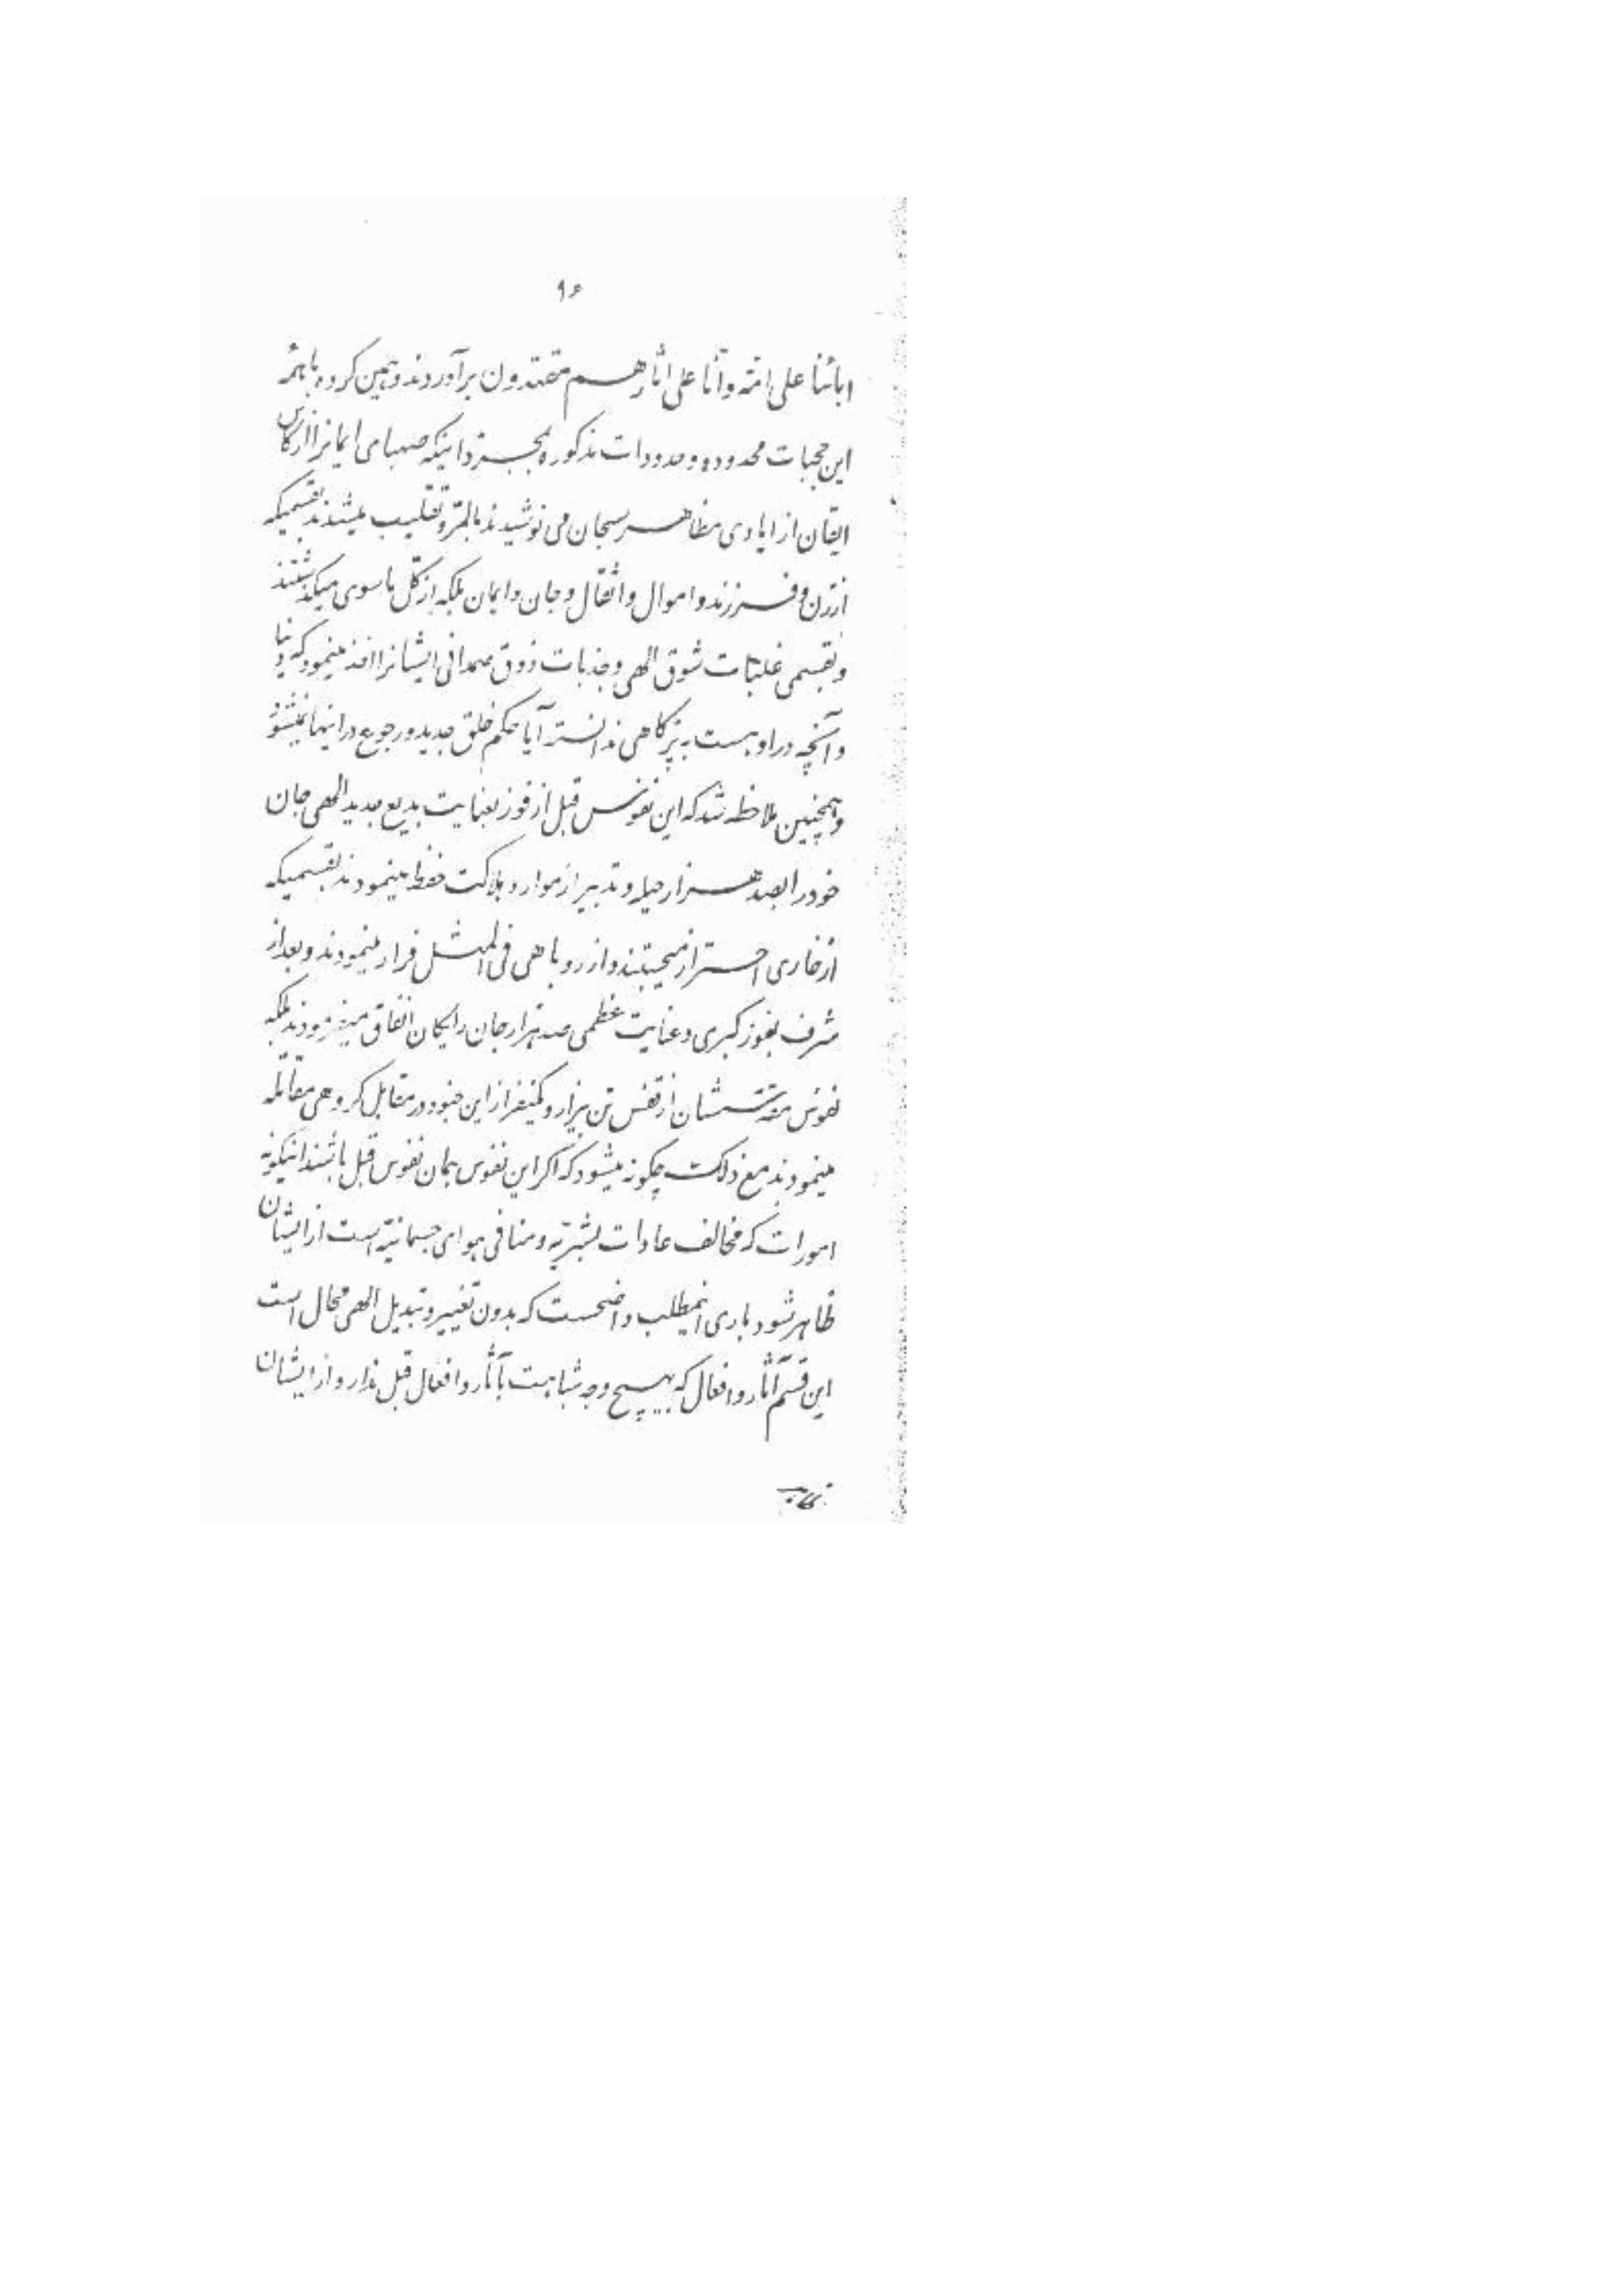 ٩۶
ابائنا علی امّة و انّا علی آثارهم مقتدون برآوردند و همین گروه با همهٔ
این حجبات محدوده و حدودات مذکوره بمجرّد اینکه صهبای ایمانرا از کاس
ایقان از ایادی مظاهر سبحان می نوشیدند بالمرّه تقلیب میشدند بقسمیکه
از زن و فرزند و اموال و اثقال و جان و ایمان بلکه از کلّ ماسوی میگذشتند
و بقسمی غلبات شوق الهی و جذبات ذوق صمدانی ایشانرا اخذ مینمود که دنیا
و آنچه در او هست به پر کاهی ندانسته آیا حکم خلق جدید و رجوع در اینها نمیشود
و همچنین ملاحظه شد که این نفوس قبل از فوز بعنایت بدیع جدید الهی جان
خود را بصد هزار حیله و تدبیر از موارد هلاکت حفظ مینمودند بقسمیکه
از خاری احتراز میجستند و از روباهی فی المثل فرار مینمودند و بعد از
شرف بفوز کبری و عنایت عظمی صد هزار جان رایگان انفاق میفرمودند بلکه
نفوس مقدّسشان از قفس تن بیزار و یکنفر از این جنود در مقابل گروهی مقاتله
مینمودند مع ذلک چگونه میشود که اگر این نفوس همان نفوس قبل باشند اینگونه
امورات که مخالف عادات بشریّه و منافی هوای جسمانیّه است از ایشان
ظاهر شود باری اینمطلب واضحست که بدون تغییر و تبدیل الهی محال است
این قسم آثار و افعال که بهیچ وجه شباهت بآثار و افعال قبل ندارد از ایشان